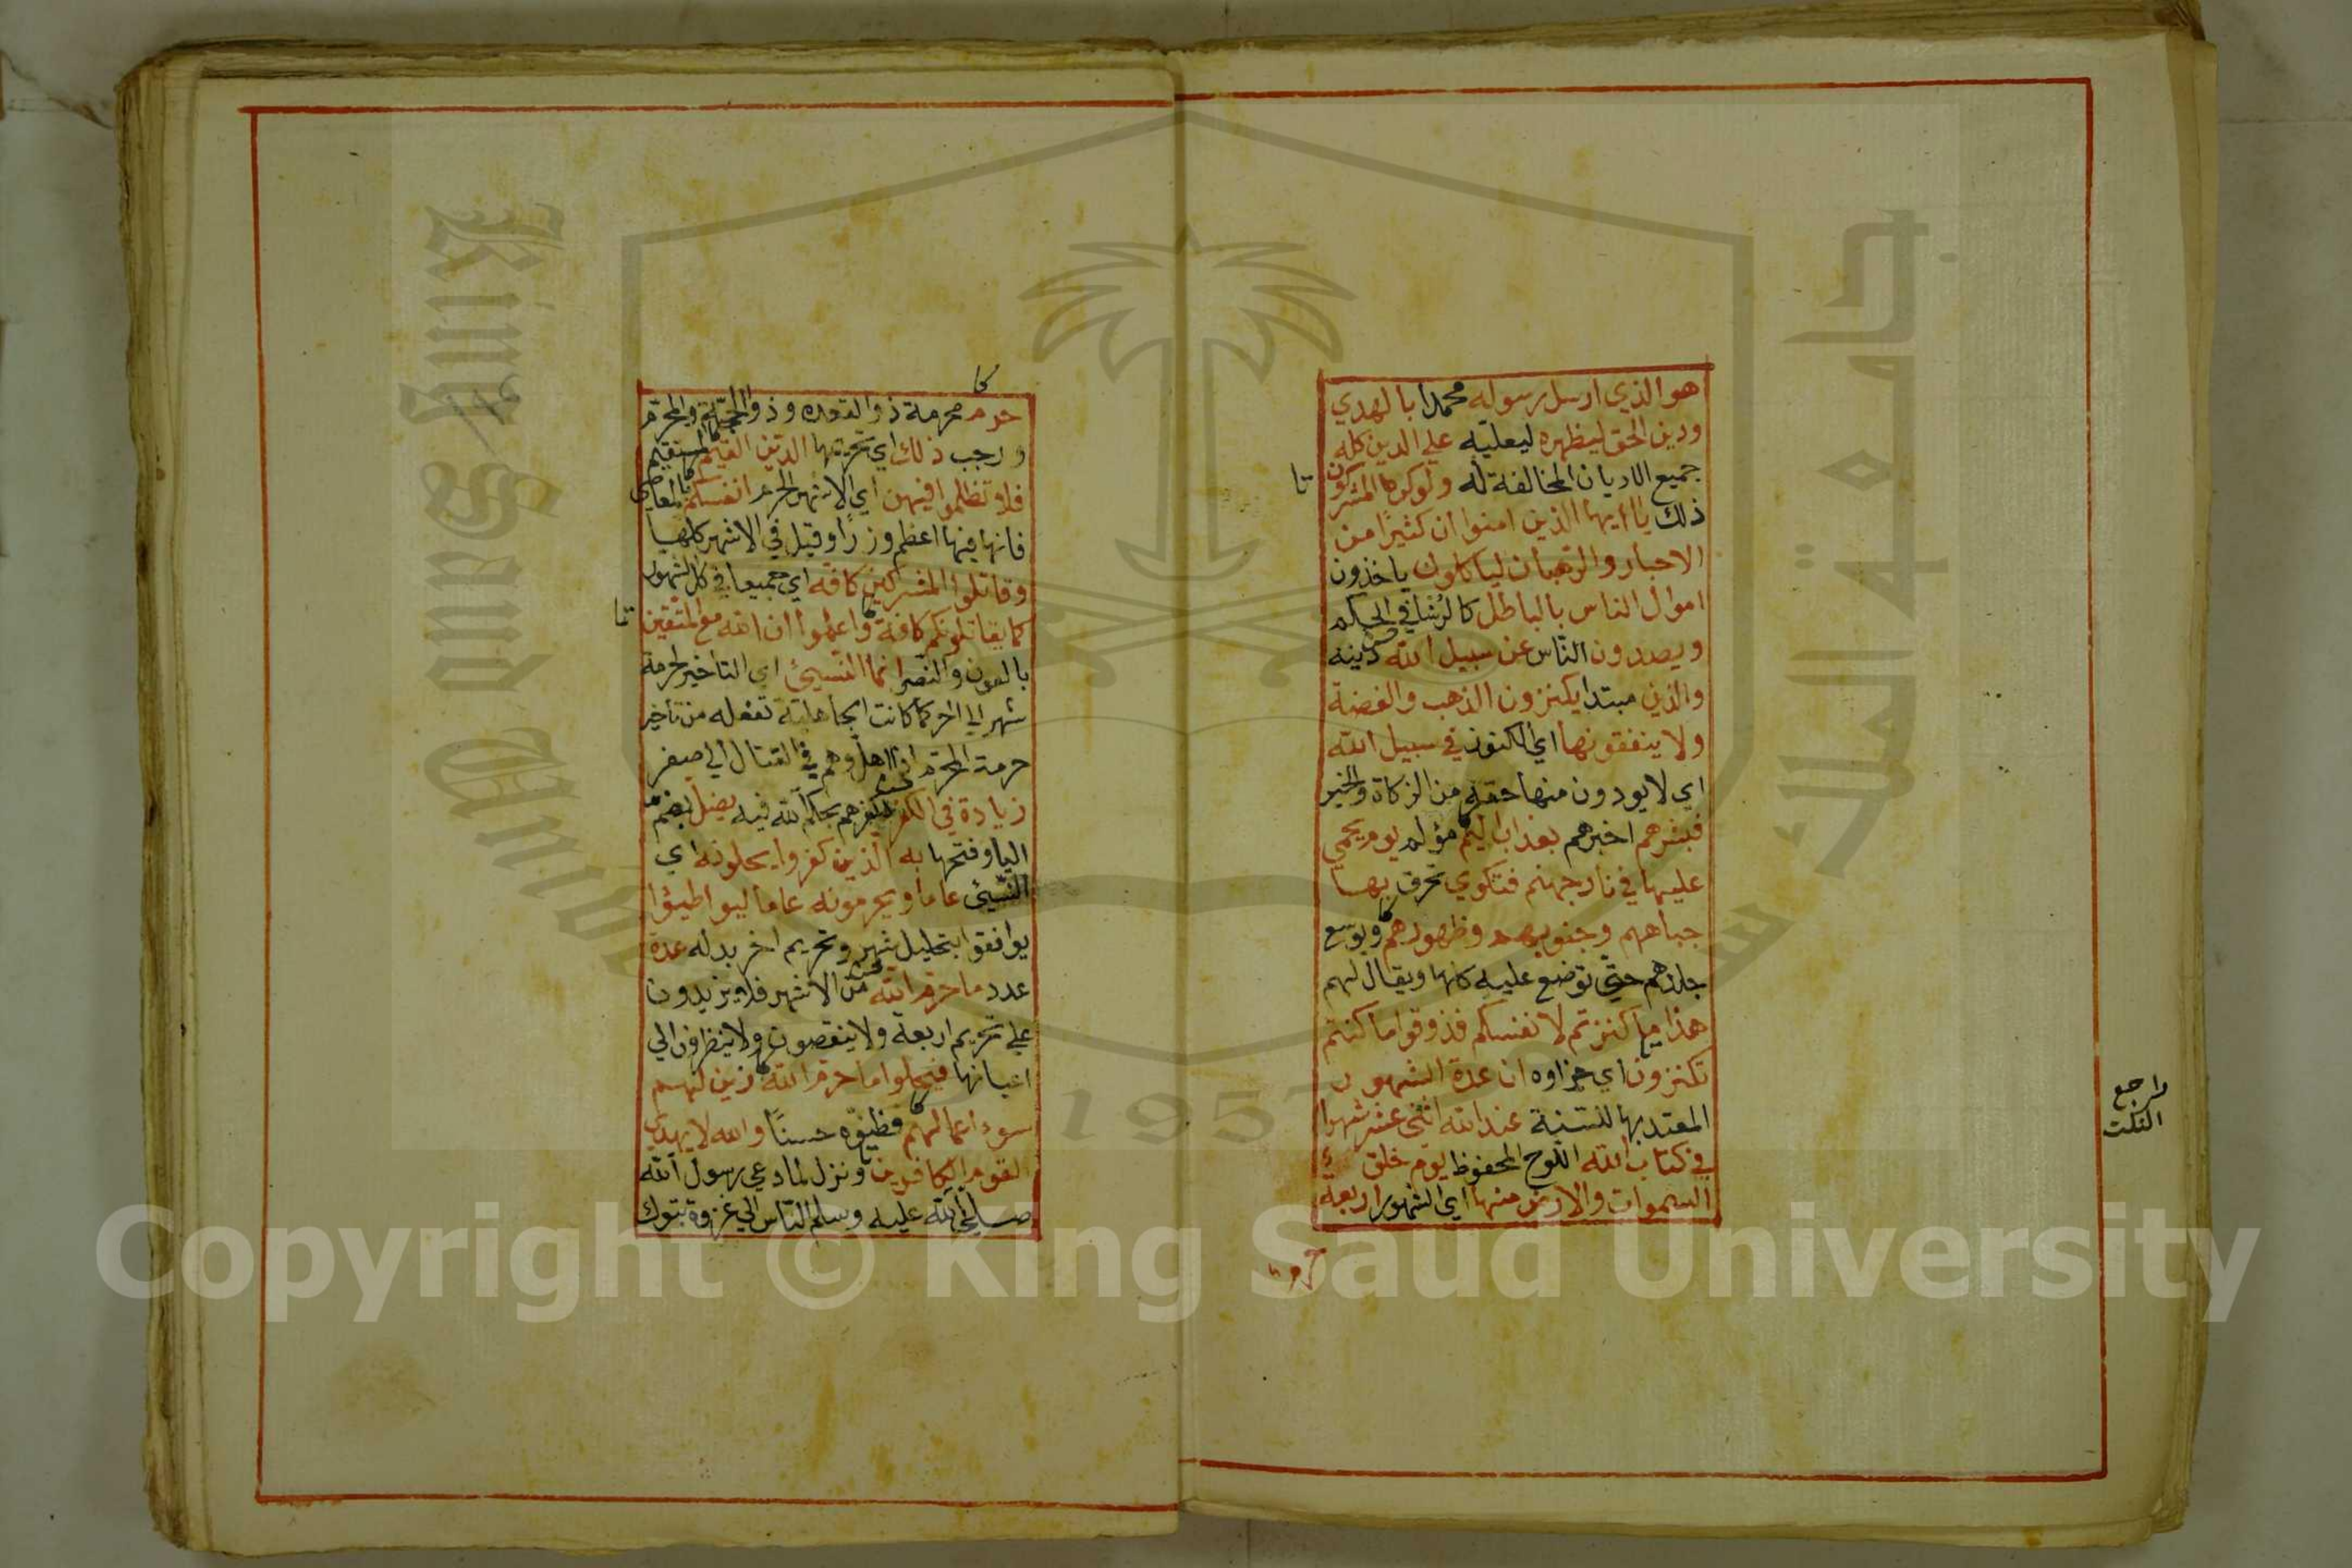 هو الذي ارسل رسوله محمدا بالهدي
ودين الحق ليظهره ليعليه علي الدين كله
جميع الاديان المخالفة له ولو كره المشركون
ذلك يا ايها الذين امنوا ان كثيرًا من
الاحبار والرهبان لياكلون ياخذون
اموال الناس بالباطل كالرشا في الحكم
ويصدون الناس عن سبيل الله دينه
والذين مبتدا يكنزون الذهب والفضة
ولا ينفقونها اي الكنوز في سبيل الله
اي لا يودون منها حقه من الزكاة والخير
فبشرهم اخبرهم بعذاب اليم مؤلم يوم يحمي
عليها في نار جهنم فتكوي تحرق بها
جباههم وجنوبهم وظهورهم ويوسع
جلدهم حتي توضع عليه كلها ويقال لهم
هذا ما كنزتم لانفسكم فذوقوا ما كنتم
تكنزون اي جزاوه ان عدة الشهور
المعتد بها للسنة عند الله اثني عشر شهرا
في كتاب الله اللوح المحفوظ يوم خلق
السموات والارض منها اي الشهور اربعة
تا
راجع
النكت
كا
حرم محرمة ذو القعده وذو الحجة والمحرم
ورجب ذلك اي تحريمها الدين القيم المستقيم
فلا تظلموا فيهن اي الاشهر الحرم انفسكم بالمعاصي
فانها فيها اعظم وزرًا وقيل في الاشهر كلها
وقاتلوا المشركين كافة اي جميعا في كل الشهور
كما يقاتلونكم كافة واعلموا ان الله مع المتقين
بالعون والنصر انما النسيئ اي التاخير لحرمة
شهر الي اخر كما كانت الجاهلية تفعله من تاخير
حرمة المحرم اذا هل وهم في القتال الي صفر
زيادة في الكفر لكفرهم بحكم الله فيه يضل بضم
اليا وفتحها به الذين كفروا يحلونه اي
النسيئ عاما ويحرمونه عاما ليواطيؤا
يوافقوا بتحليل شهر وتحريم اخر بدله عدة
عدد ما حرم الله من الاشهر فلا يزيدون
علي تحريم اربعة ولا ينقصون ولا ينظرون الي
اعيانها فيحلوا ما حرم الله زين لهم
سوء اعمالهم فظنوه حسنًا والله لا يهدي
القوم الكافرين ونزل لما دعي رسول الله
صلي الله عليه وسلم الناس الي غزوة تبوك
تا
جامعة الملك سعود
King Saud University
1957
Copyright © King Saud University